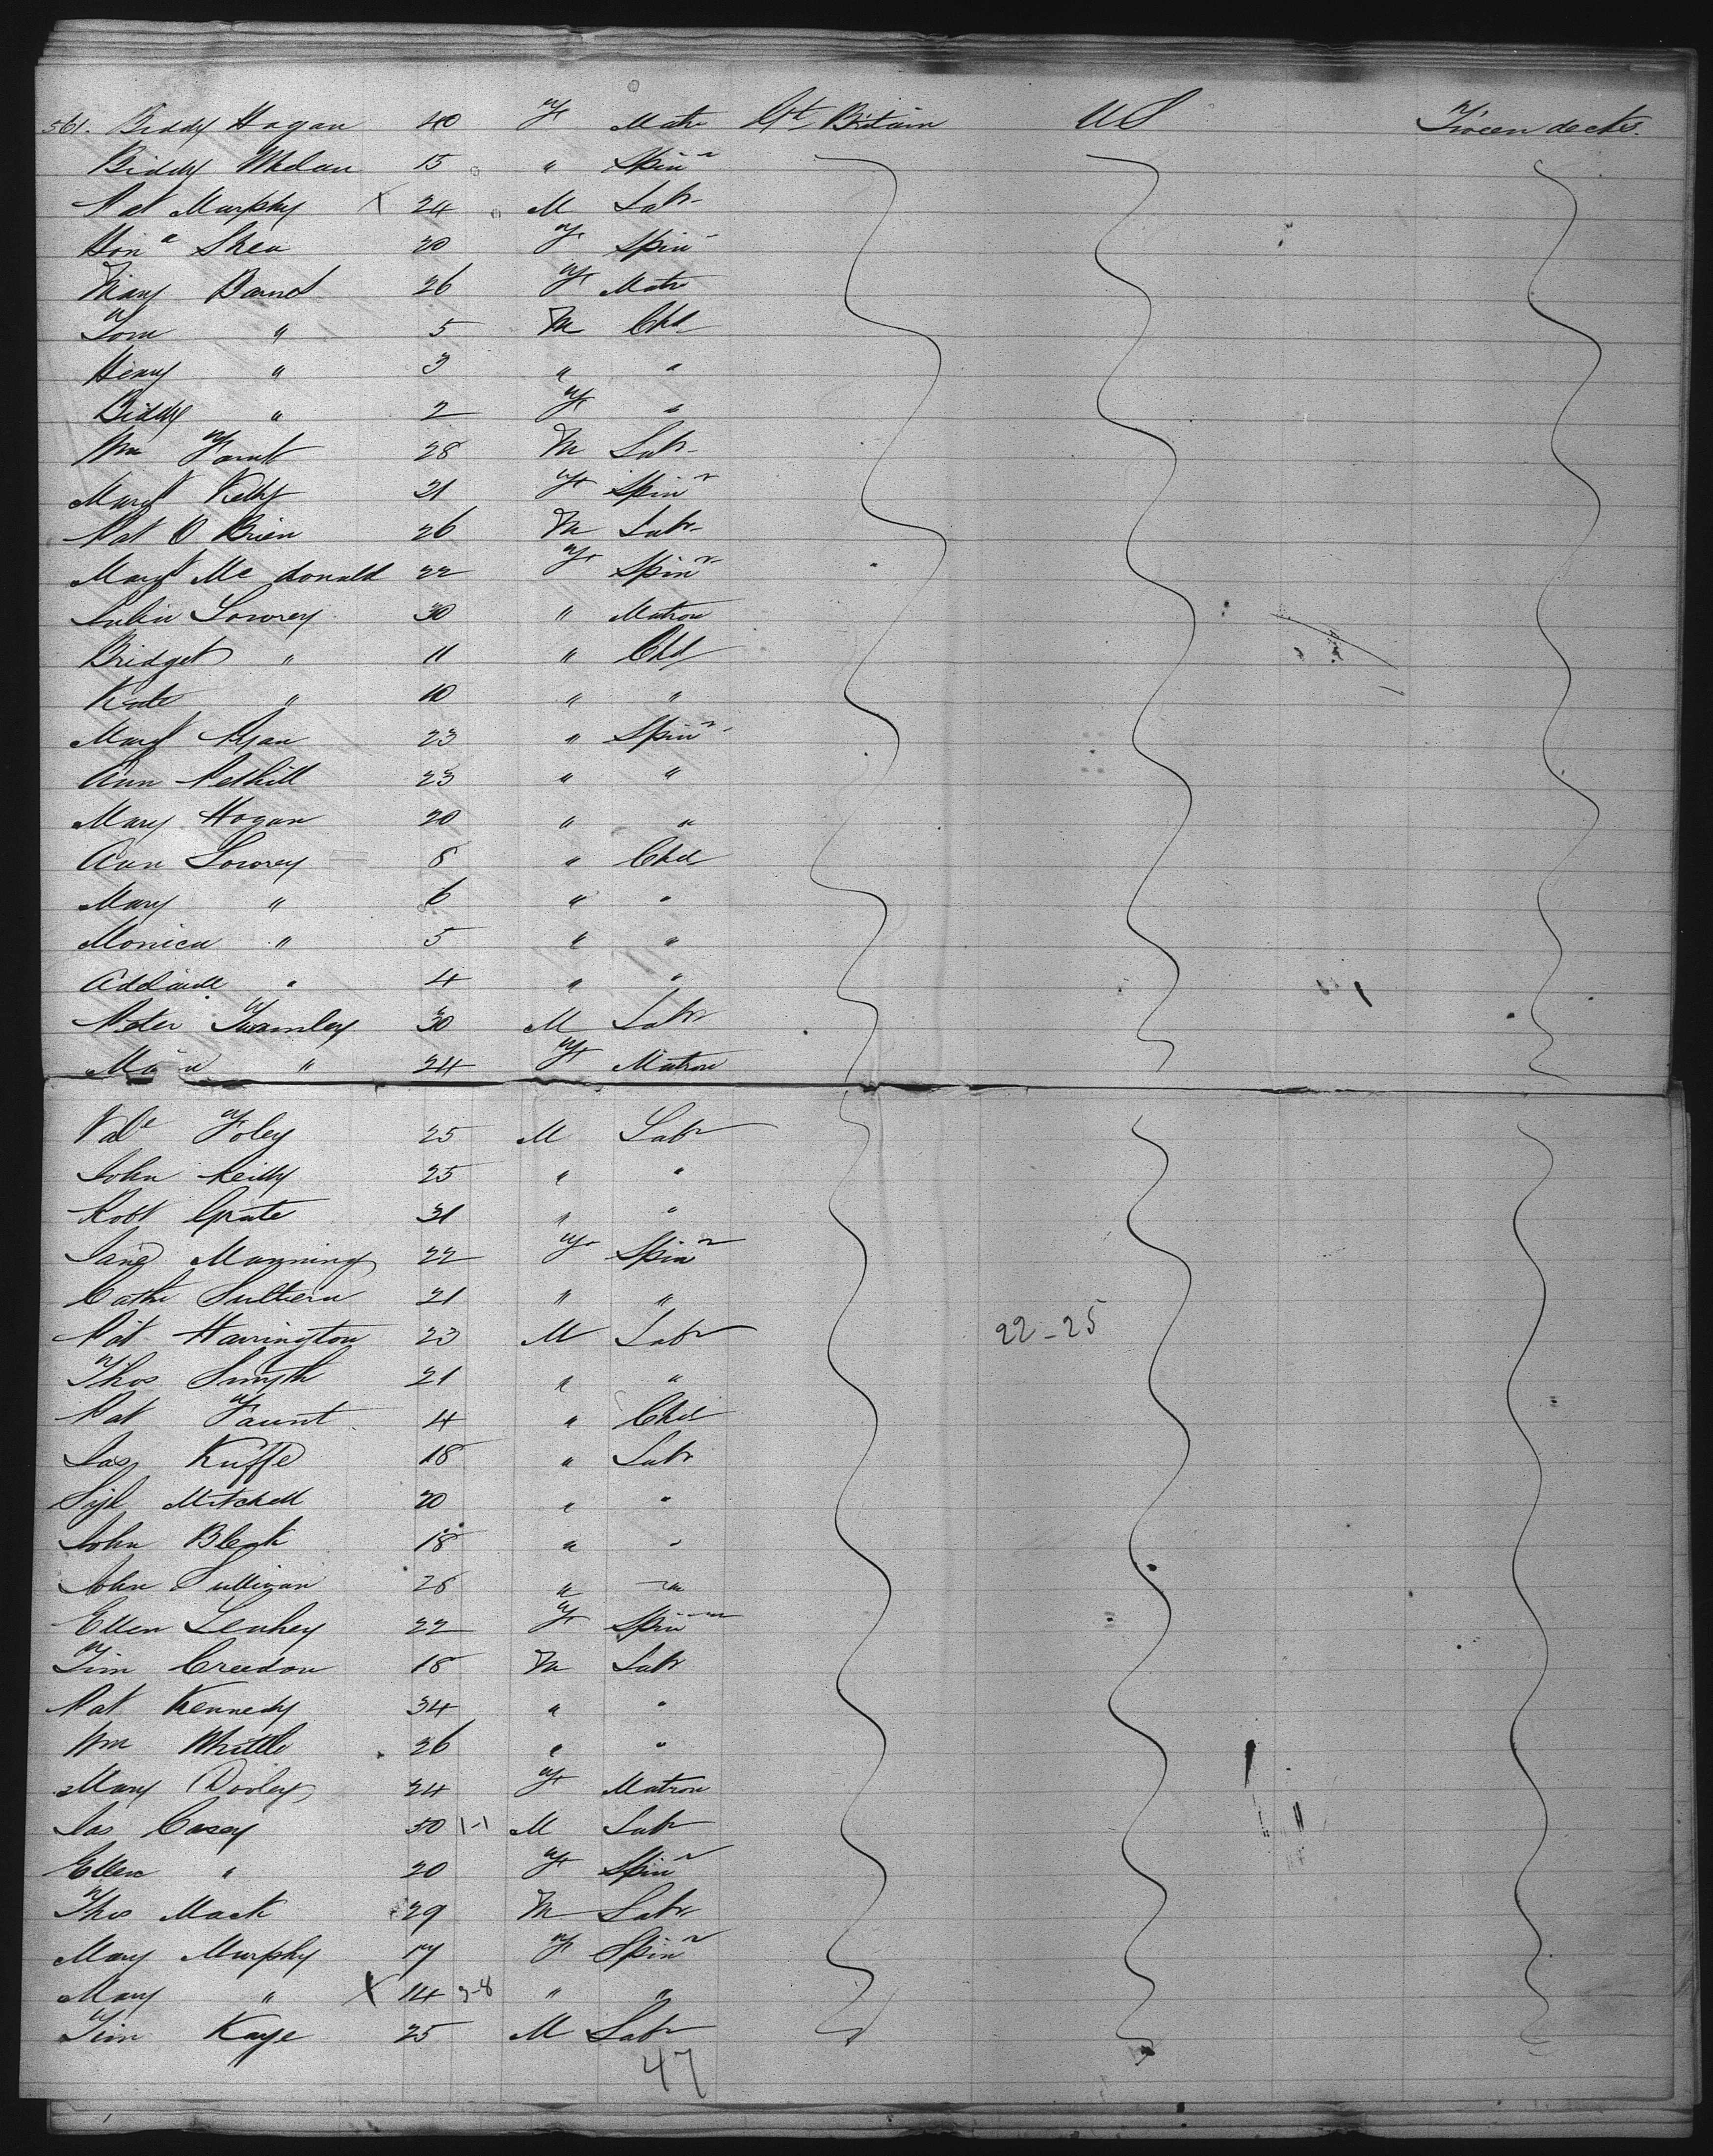 561. Biddy Hogan 40 F Matr Gt Britain US Tween decks.
Biddy Whelan 15 " Spinr
Pat Murphy X 24 M Labr
Hona Shea 20 F Spinr
Mary Barnet 26 F Matr
Tom " 5 M Chd
Henry " 3 " "
Biddy " 2 F "
Wm Faunt 28 M Labr
Margt Kelly 21 F Spinr
Pat O Brien 26 M Labr
Margt Mc donald 22 F Spinr
Lowrey 30 " Matron
Bridget " 11 " Chd
Kate " 10 " "
Margt Ryan 23 " Spinr
Ann 23 " "
Mary Hogan 20 " "
Ann Lowrey 8 " Chd
Mary " 6 " "
Monica " 5 " "
Addaide " 4 " "
Peter Twamley 30 M Labr
" 24 F Matron
Foley 25 M Labr
John Reilly 25 " "
Robt Grate 31 " "
Jane Manning 22 F Spinr
Cathe 21 " "
Pat Harrington 23 M Labr 22-25
Thos Smyth 21 " "
Pat Faunt 4 " Chd
Jas Kuffe 18 " Labr
Mitchell 20 " "
John Bleak 18 " "
John Sullivan 28 " "
Ellen Leahey 22 F Spinr
Tim Creedon 18 M Labr
Pat Kennedy 34 " "
Wm Whittle 26 " "
Mary Dooley 24 F Matron
Jas Casey 50 1-1 M Labr
Ellen " 20 F Spinr
Thos Mack 29 M Labr
Mary Murphy 17 F Spinr
Mary " X 14 3-8 " "
Tim Kaye 25 M Labr
47